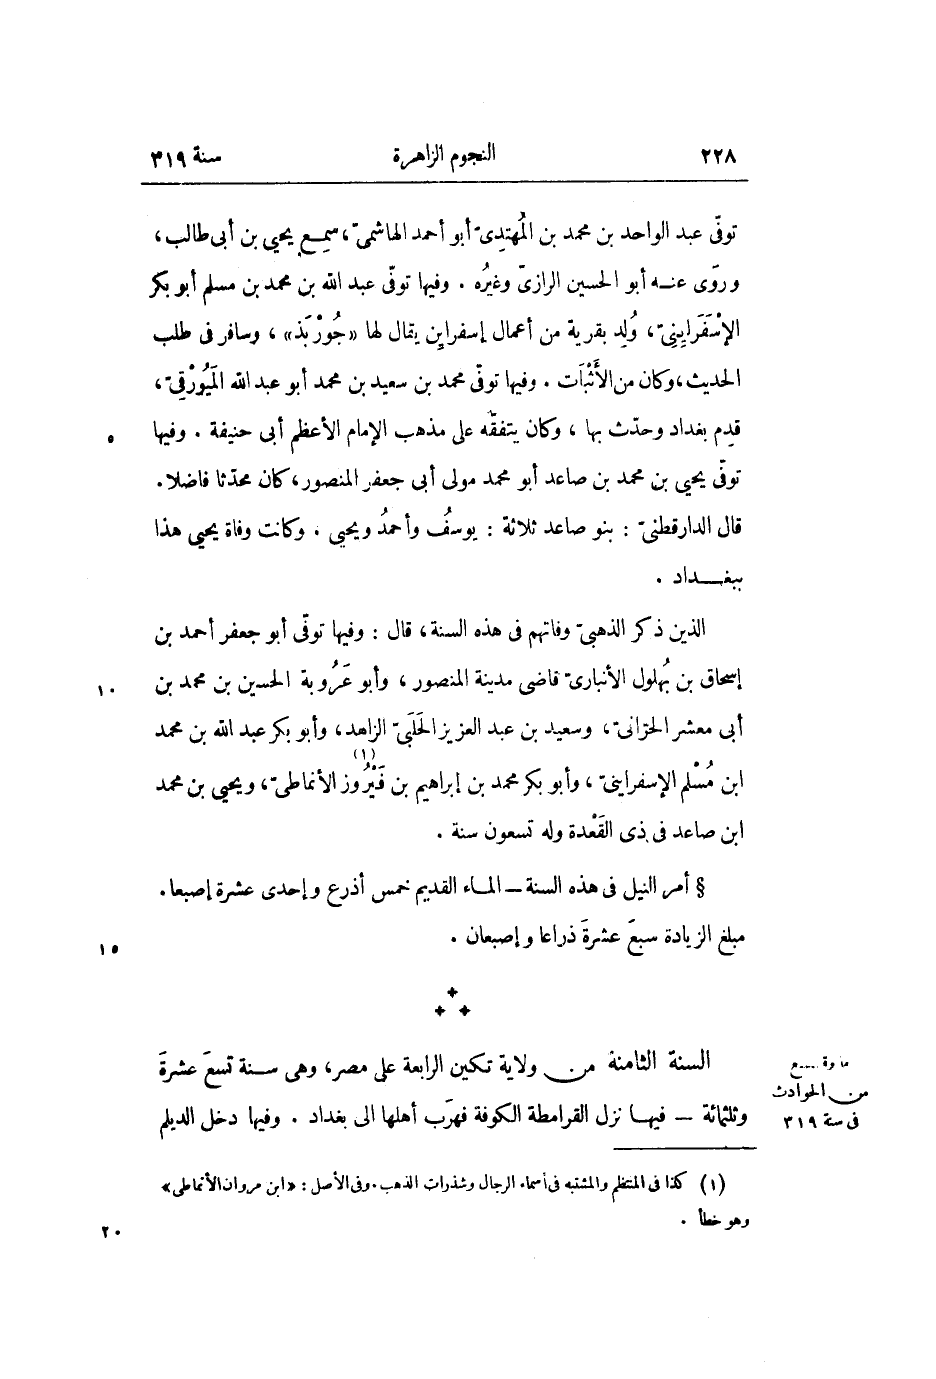 ٢٢٨ النجوم الزاهرة سنة ٣١٩
توفّى عبد الواحد بن محمد بن المُهتدِىّ أبو أحمد الهاشمىّ، سمِع يحيى بن أبى طالب،
وروَى عنه أبو الحسين الرازىّ وغيرُه . وفيها توفّى عبد الله بن محمد بن مسلم أبو بكر
الإسْفَرايِنِىّ، وُلِد بقرية من أعمال إسفراين يقال لها «جُورْبَذ» ، وسافر فى طلب
الحديث، وكان من الأَثْبَات . وفيها توفّى محمد بن سعيد بن محمد أبو عبد الله المَيُورْقِىّ،
قدِم بغداد وحدّث بها ، وكان يتفقّه على مذهب الإمام الأعظم أبى حنيفة . وفيها ٥
توفّى يحيى بن محمد بن صاعد أبو محمد مولى أبى جعفر المنصور، كان محدّثا فاضلا.
قال الدارقطنىّ : بنو صاعد ثلاثة : يوسفُ وأحمدُ ويحيى . وكانت وفاة يحيى هذا
ببغـــداد .
الذين ذكر الذهبىّ وفاتهم فى هذه السنة، قال : وفيها توفّى أبو جعفر أحمد بن
إسحاق بن بُهلول الأنبارىّ قاضى مدينة المنصور ، وأبو عَرُوبة الحسين بن محمد بن ١٠
أبى معشر الحرّانىّ، وسعيد بن عبد العزيز الحَلَبىّ الزاهد، وأبو بكر عبد الله بن محمد
ابن مُسْلم الإسفراينىّ ، وأبو بكر محمد بن إبراهيم بن فَيْرُوز (١) الأنماطىّ، ويحيى بن محمد
ابن صاعد فى ذى القَعْدة وله تسعون سنة .
§ أمر النيل فى هذه السنة ــ الماء القديم خمس أذرع وإحدى عشرة إصبعا.
مبلغ الزيادة سبعَ عشرةَ ذراعا وإصبعان . ١٥
السنة الثامنة من ولاية تكين الرابعة على مصر، وهى سنة تسعَ عشرةَ
وثلثمائة ــ فيها نزل القرامطة الكوفة فهرَب أهلها الى بغداد . وفيها دخل الديلم
ما وقع
من الحوادث
فى سنة ٣١٩
(١) كذا فى المنتظم والمشتبه فى أسماء الرجال وشذرات الذهب . وفى الأصل : «ابن مروان الأنماطى»
وهو خطأ . ٢٠